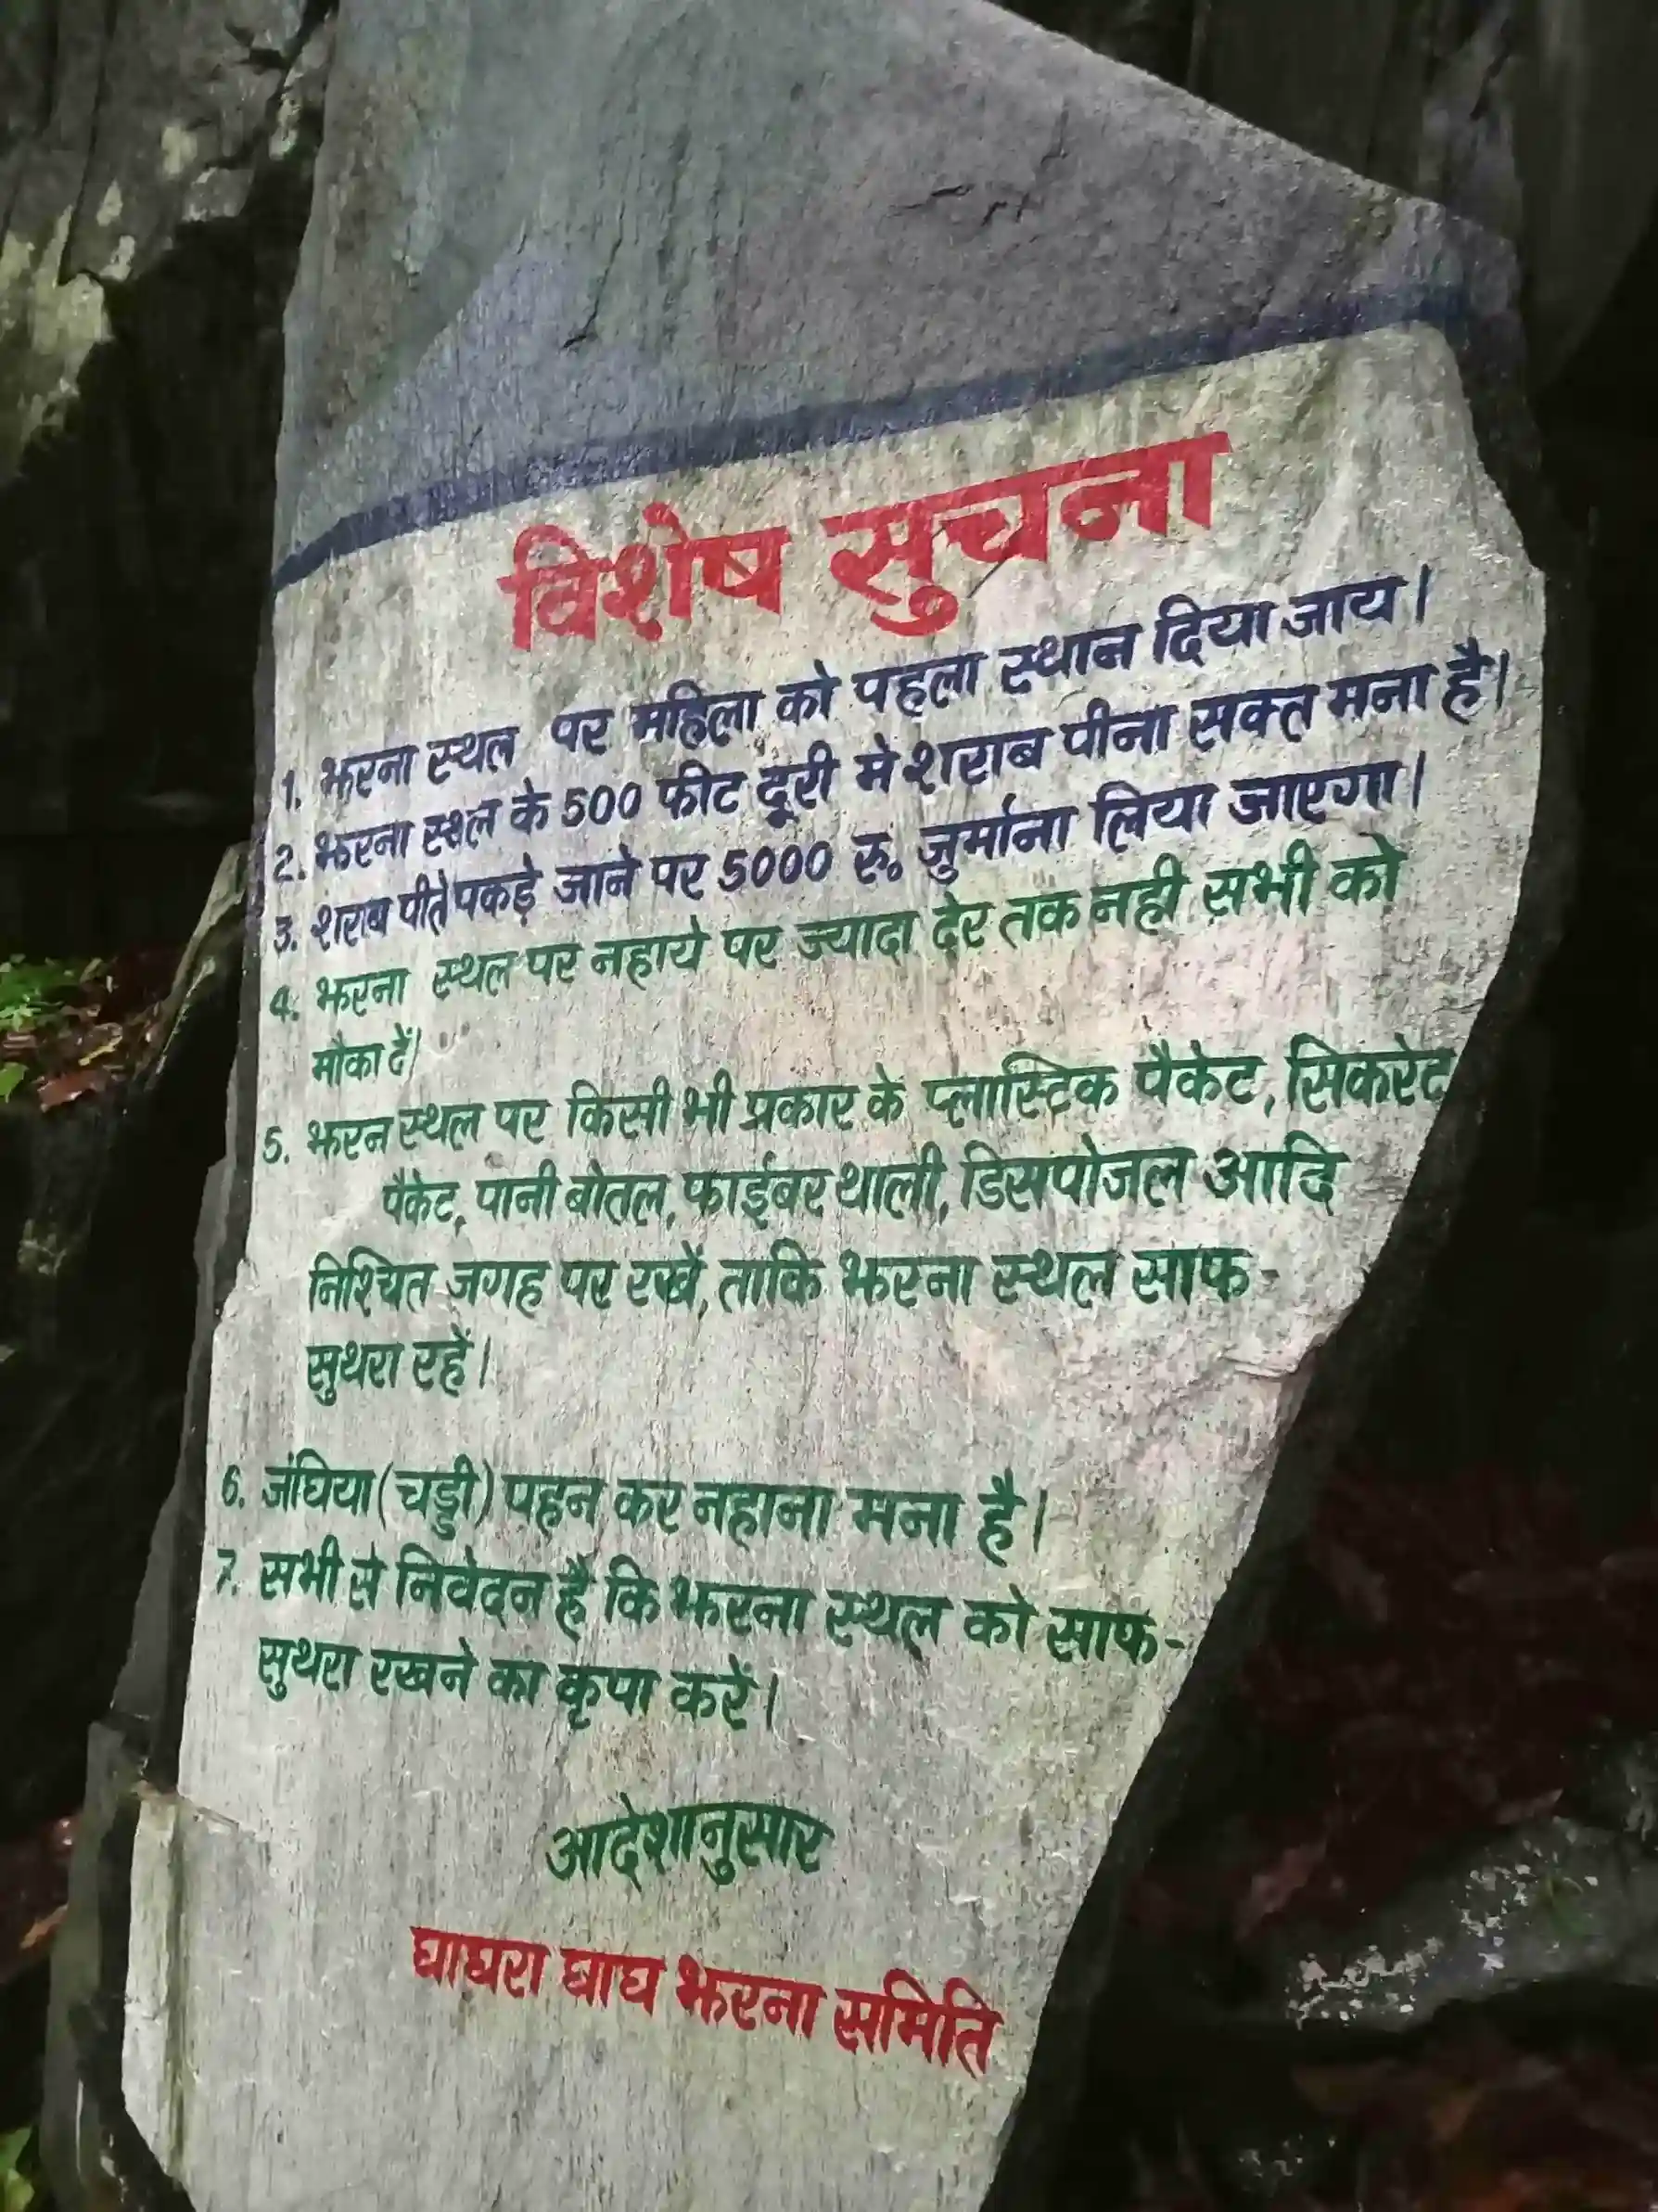 विशेष सुचना
1. झरना स्थल पर महिला को पहला स्थान दिया जाय।
2. झरना स्थल के 500 फीट दूरी मे शराब पीना सक्त मना है।
3. शराब पीते पकड़े जाने पर 5000 रु. जुर्माना लिया जाएगा।
4. झरना स्थल पर नहाये पर ज्यादा देर तक नही सभी को
मौका दें।
5. झरन स्थल पर किसी भी प्रकार के प्लास्टिक पैकेट, सिकरेट
पैकेट, पानी बोतल, फाईबर थाली, डिसपोजल आदि
निश्चित जगह पर रखें, ताकि झरना स्थल साफ-
सुथरा रहें।
6. जंघिया (चड्डी) पहन कर नहाना मना है।
7. सभी से निवेदन है कि झरना स्थल को साफ-
सुथरा रखने का कृपा करें।
आदेशानुसार
घाघरा घाघ झरना समिति